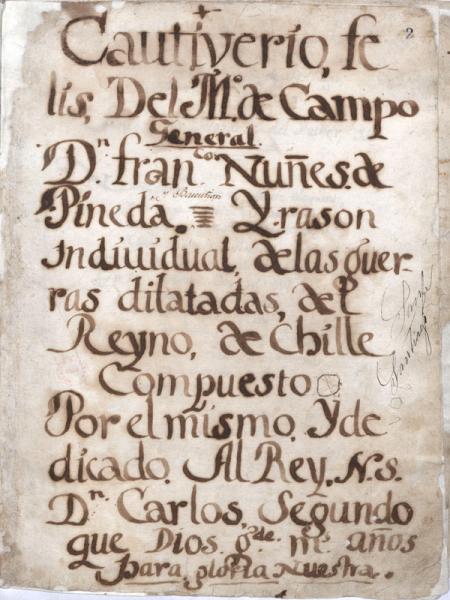 Cautiverio, fe
2
lis, Del M.º de Campo
General
D.n fran.co Nuñes. de
y Bascuñan
Pineda. Y. rason
Indiuidual, de las guer-
ras dilatadas, del
Reyno, de Chille
Compuesto
Por el mismo. Y de
dicado. Al Rey. N. s.
D.n Carlos, Segundo
que Dios. g.de m.s años
Para gloria Nuestra.
Santiago